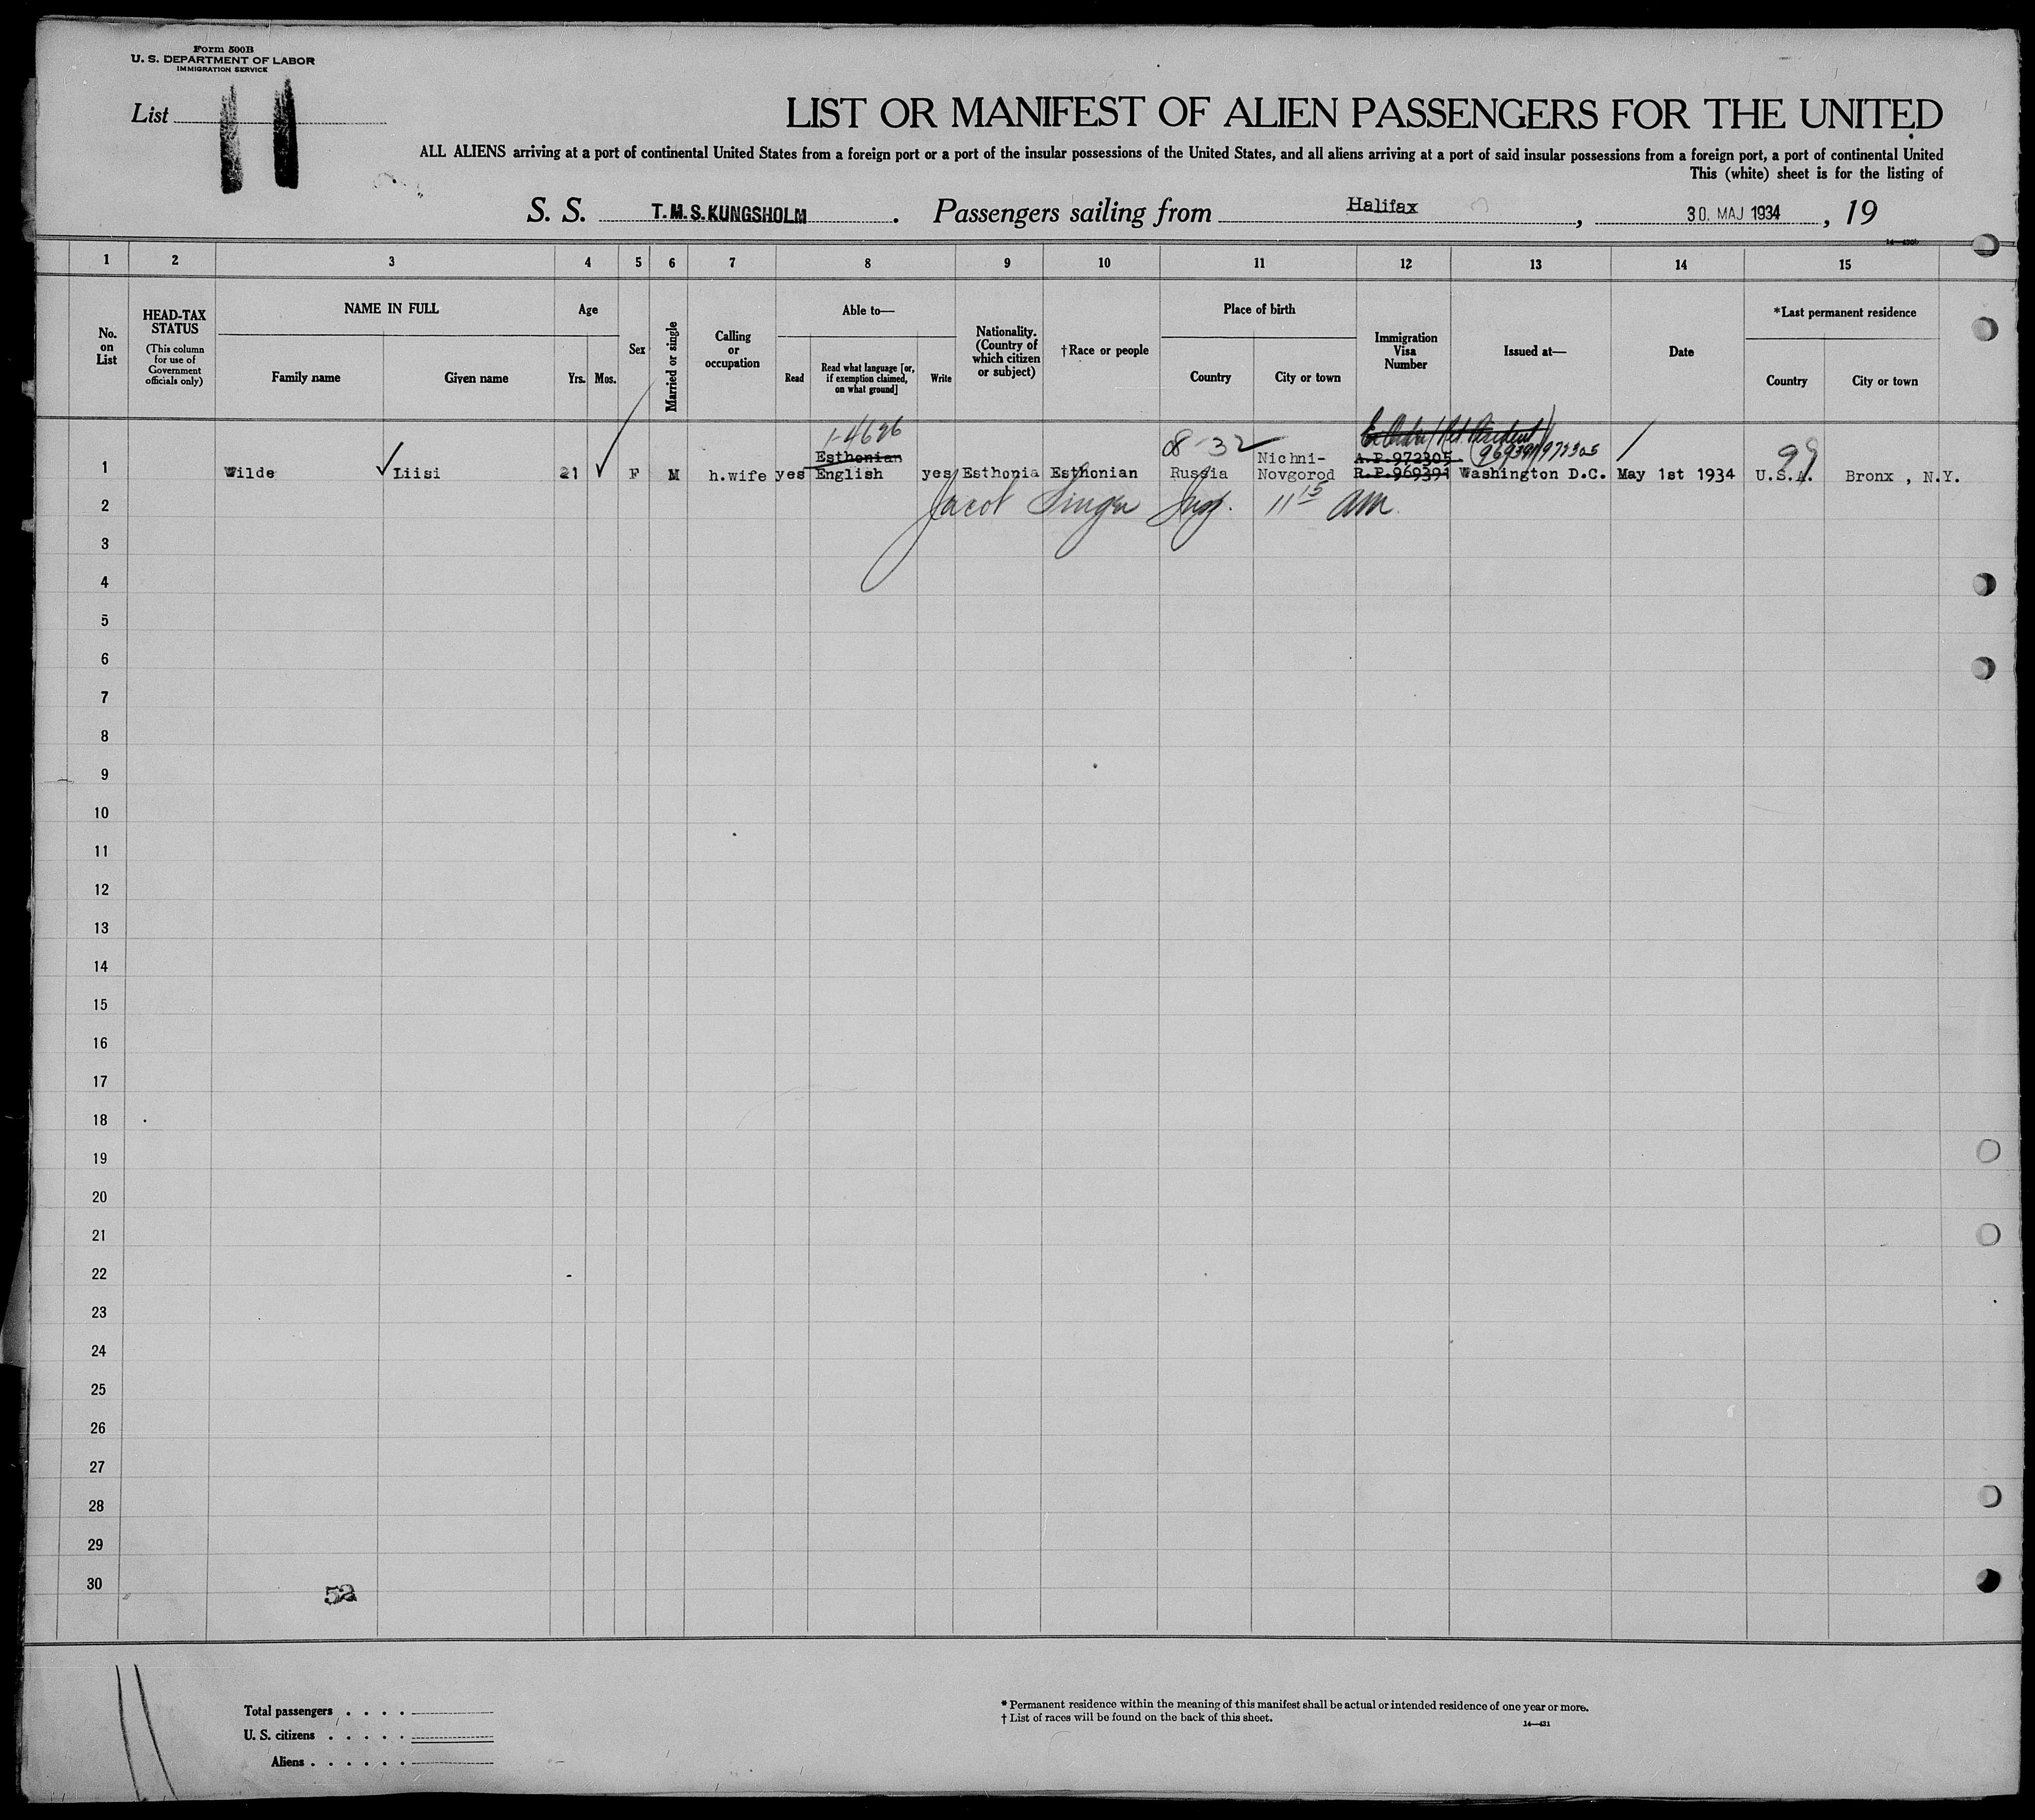 Form 500B
U. S. DEPARTMENT OF LABOR
IMMIGRATION SERVICE
List 11
LIST OR MANIFEST OF ALIEN PASSENGERS FOR THE UNITED
ALL ALIENS arriving at a port of continental United States from a foreign port or a port of the insular possessions of the United States, and all aliens arriving at a port of said insular possessions from a foreign port, a port of continental United
This (white) sheet is for the listing of
S. S. T.M.S.KUNGSHOLM . Passengers sailing from Halifax , 30. MAJ 1934 , 19
1 2 3 4 5 6 7 8 9 10 11 12 13 14 15
No. on List
HEAD-TAX STATUS
(This column for use of Government officials only)
NAME IN FULL
Family name Given name
Age
Yrs. Mos.
Sex
Married or single
Calling or occupation
Able to—
Read
Read what language [or, if exemption claimed, on what ground]
Write
Nationality. (Country of which citizen or subject)
†Race or people
Place of birth
Country City or town
Immigration Visa Number
Issued at—
Date
*Last permanent residence
Country City or town
1-4626
8-32
969391/972305
99
Esthonian Nichni- A.P.972305
1 Wilde Liisi 21 F M h.wife yes English yes Esthonia Esthonian Russia Novgorod R.P.969391 Washington D.C. May 1st 1934 U.S.A. Bronx , N.Y.
Jacob Singer Insp. 11 15 AM
2
3
4
5
6
7
8
9
10
11
12
13
14
15
16
17
18
19
20
21
22
23
24
25
26
27
28
29
30
52
Total passengers . . . .
U. S. citizens . . . . .
Aliens . . . . . .
* Permanent residence within the meaning of this manifest shall be actual or intended residence of one year or more.
† List of races will be found on the back of this sheet.
14—431